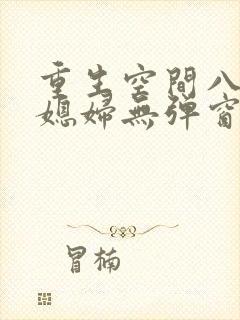 重生空間八
媳婦無彈窗
冒楠